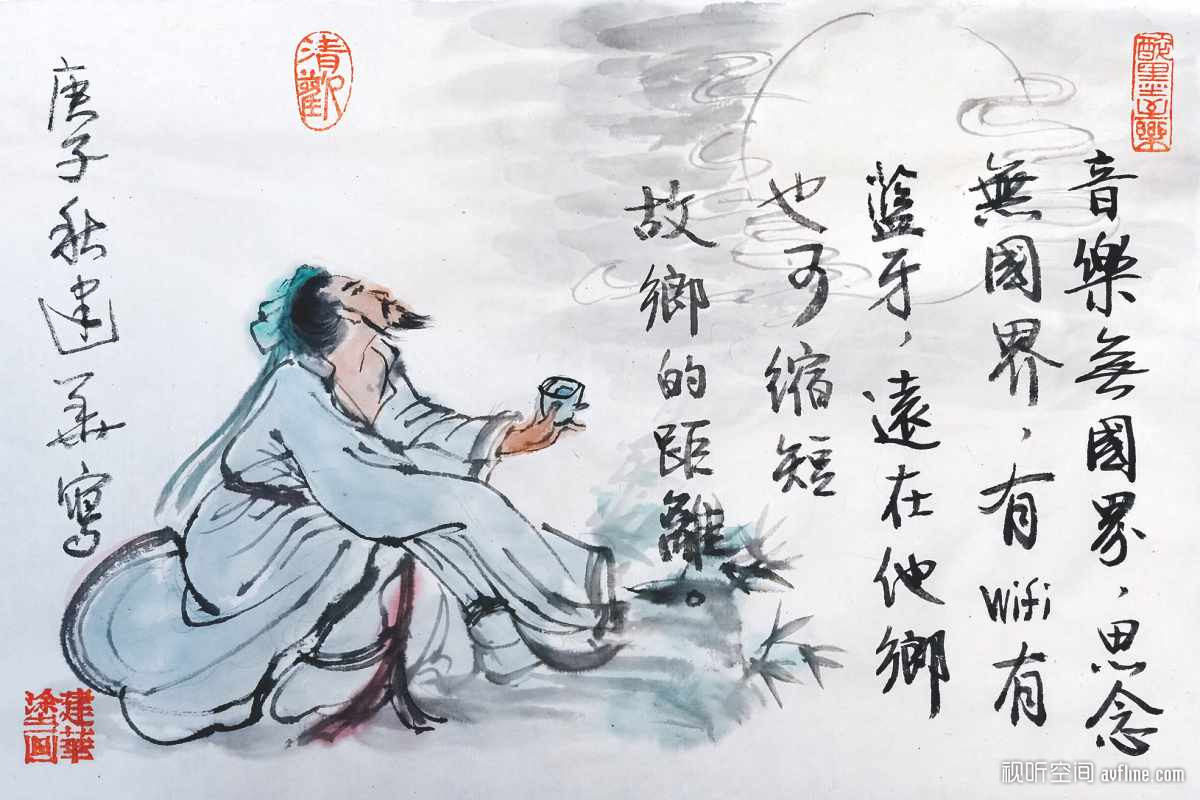 音樂無國界，思念
無國界，有wifi有
藍牙，遠在他鄉
也可縮短
故鄉的距離。
庚子秋建華寫
清觀
醉墨予樂
建華
塗画
视听空间 avfline.com